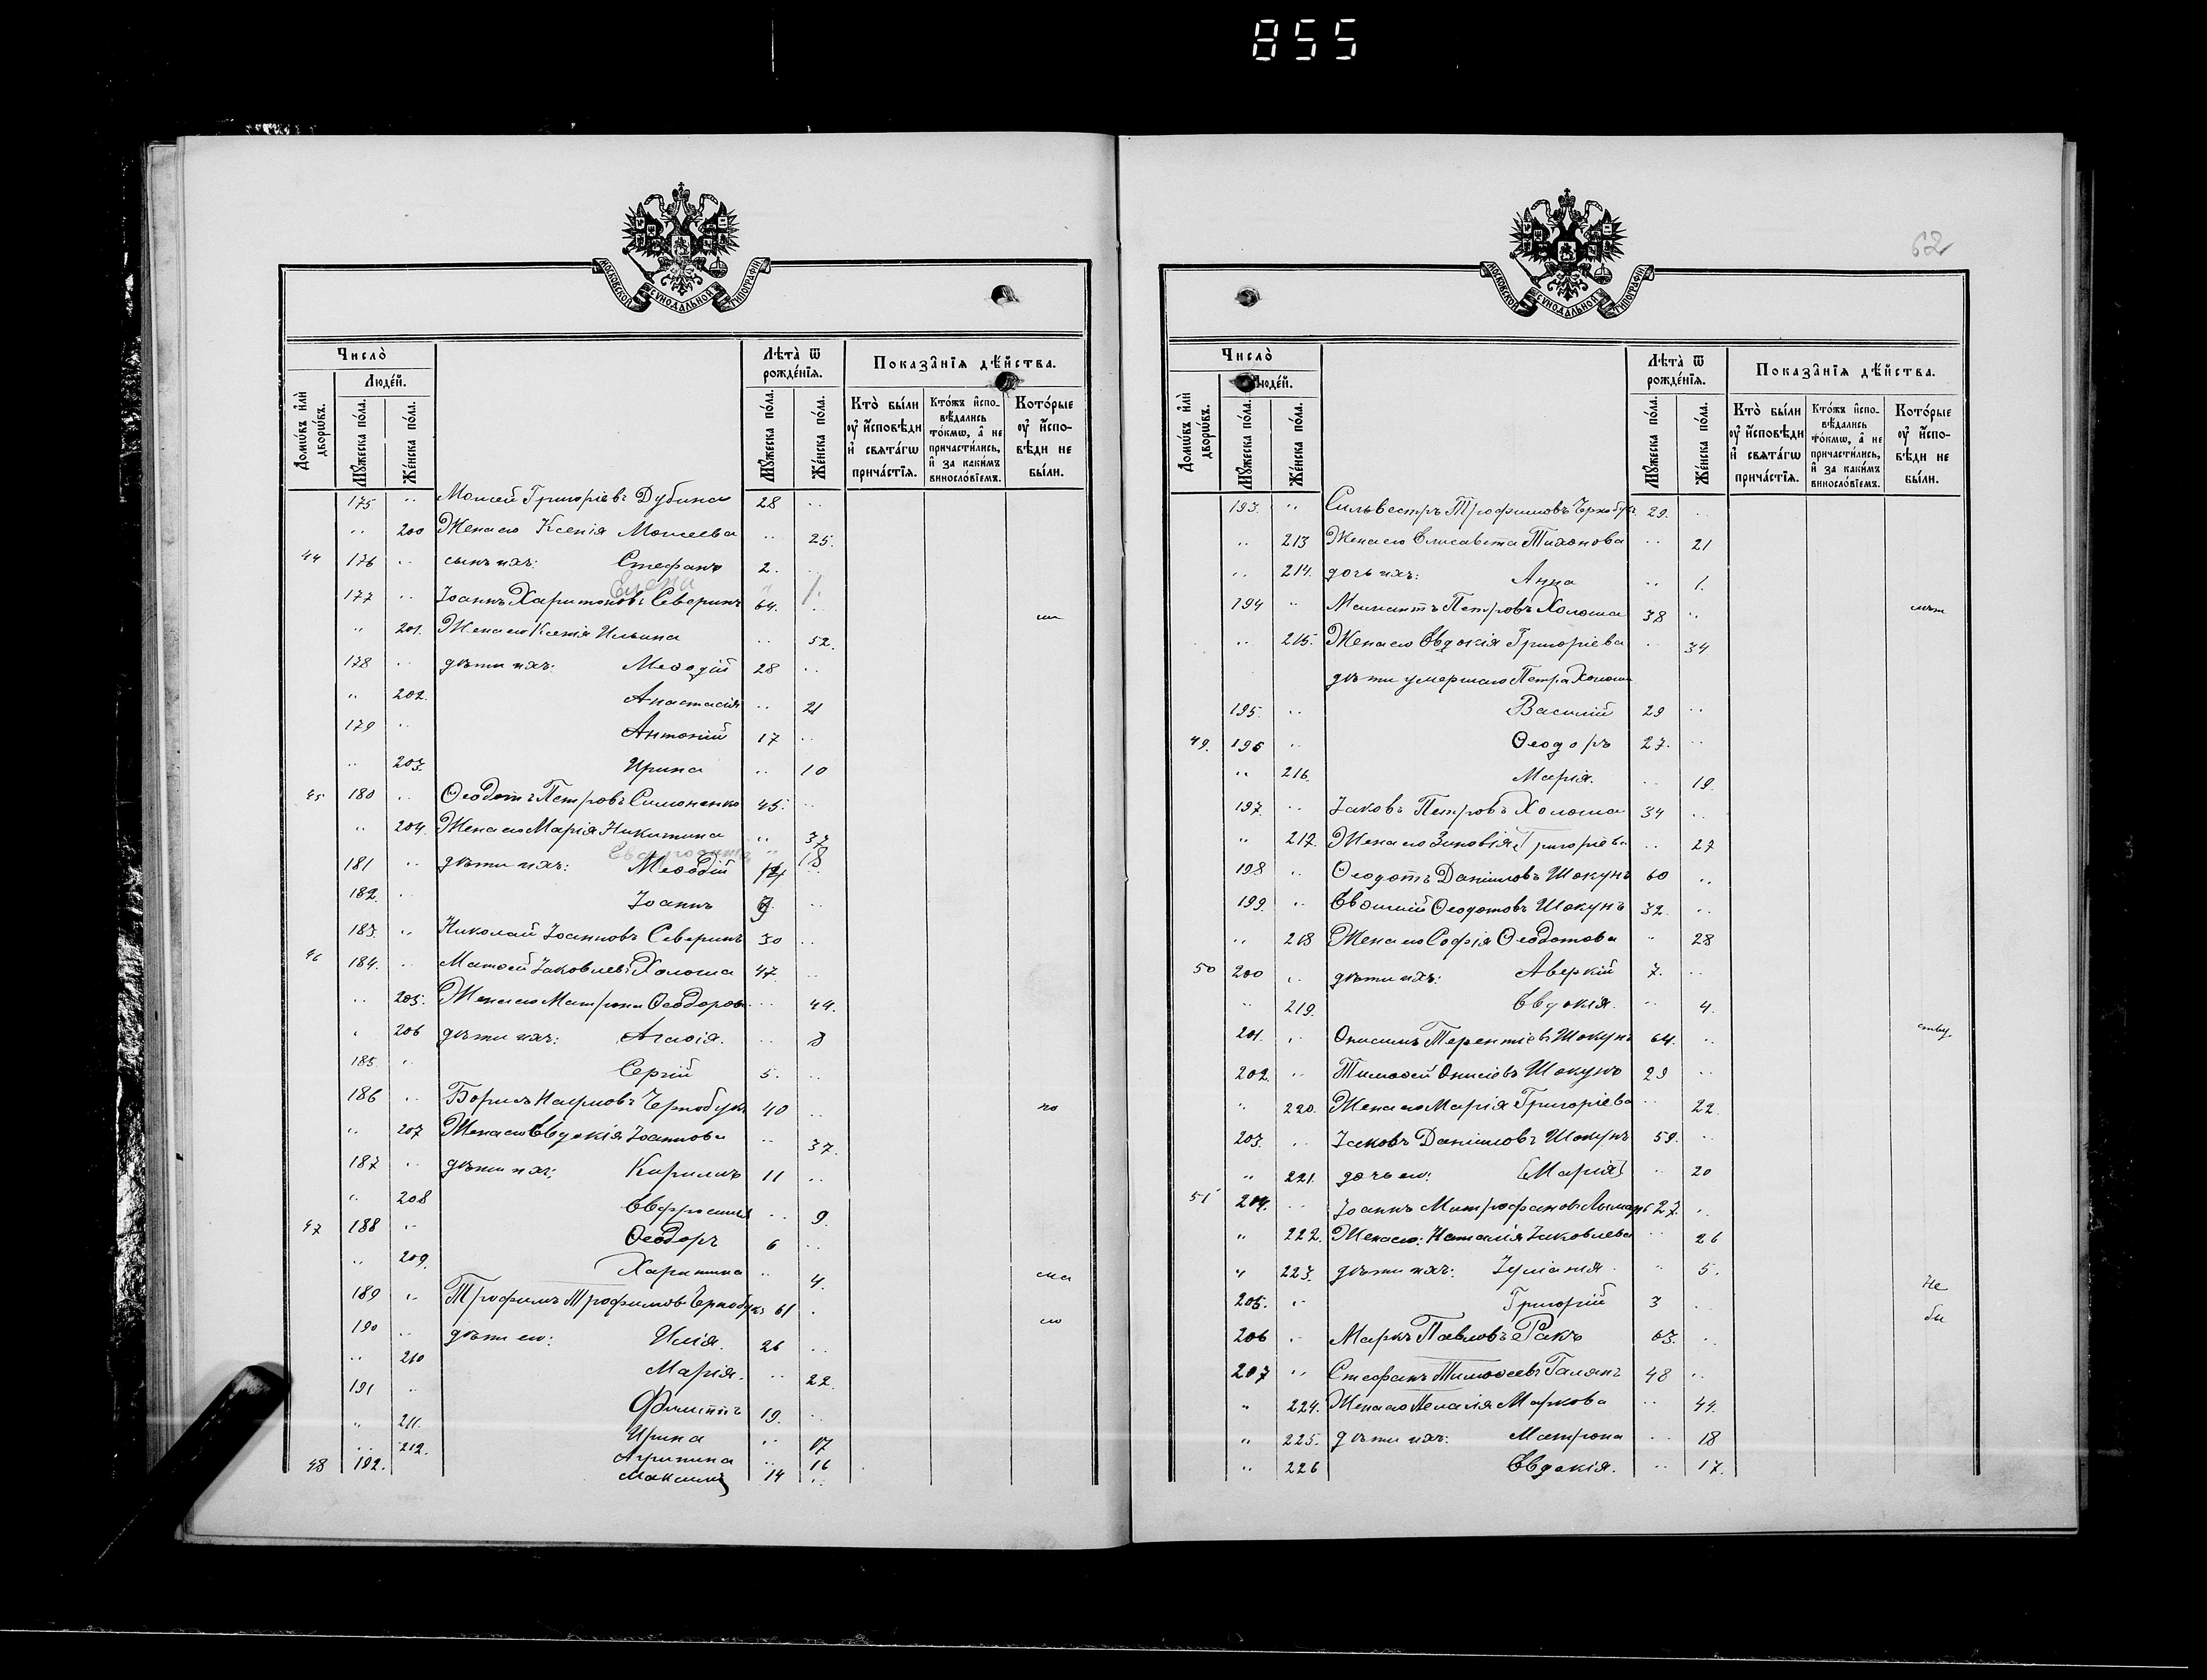 855
МОСКОВСКОЙ СѴНОДАЛЬНОЙ ТИПОГРАФІИ
Число̀
Людей.
Домѡвъ и҆лѝ дворѡвъ.
Мꙋжеска по́ла.
Же́нска по́ла.
Лѣта̀ ѿ рожде́нїѧ.
Мꙋжеска по́ла.
Же́нска по́ла.
Показа̑нїѧ дѣ́йства.
Кто̀ бы́ли оу҆ и҆́сповѣди и҆ свѧта́гѡ прича́стїѧ.
Кто́жъ и҆спо-вѣ́дались то́кмѡ, а҆ не причасти́лись, и҆ за каки́мъ винослові́емъ.
Кото́рые оу҆ и҆́спо-вѣди не бы́ли.
175 .. Моисей Григоріевъ Дубина 28 ..
.. 200 Жена его Ксенія Моисеева .. 25.
44 176 .. сынъ ихъ: Стефанъ 2. ..
Елена .. 1.
177 .. Іоаннъ Харитоновъ Северинъ 64. ..
.. 201. Жена его Ксенія Ильина .. 52.
178 .. дѣти ихъ: Меѳодій 28 ..
.. 202. Анастасія .. 21
179 .. Антоній 17 ..
.. 203. Ирина .. 10
45 180 .. Ѳеодотъ Петровъ Симоненко 45. ..
.. 204. Жена его Марія Никитина .. 37
.. 18
181 .. дѣти ихъ: Меѳодій 14
182. .. Іоаннъ 9 ..
183. .. Николай Іоанновъ Северинъ 30 ..
46 184. .. Матѳей Іаковлевъ Холоша 47. ..
.. 205. Жена его Матрона Ѳеодорова .. 44.
.. 206 дѣти ихъ: Агаѳія. .. 8
185. .. Сергій 5. ..
186 .. Борисъ Наумовъ Чернобукъ 40 .. но
.. 207 Жена его Евдокія Іоаннова .. 37.
187 .. дѣти ихъ: Кириллъ 11 ..
.. 208 Евфросинія .. 9.
47 188 .. Ѳеодоръ 6 ..
.. 209. Харитина .. 4.
189 .. Трофимъ Трофимовъ Чернобукъ 61 .
190 .. дѣти его: Илія. 26 ..
.. 210 Марія. .. 22.
191 .. Филиппъ 19. ..
.. 211. Ирина .. 17
.. 212. Агрипина .. 16
48 192. Максимъ 14 ..
62
МОСКОВСКОЙ СѴНОДАЛЬНОЙ ТИПОГРАФІИ
Число̀
Людей.
Домѡвъ и҆лѝ дворѡвъ.
Мꙋжеска по́ла.
Же́нска по́ла.
Лѣта̀ ѿ рожде́нїѧ.
Мꙋжеска по́ла.
Же́нска по́ла.
Показа̑нїѧ дѣ́йства.
Кто̀ бы́ли оу҆ и҆́сповѣди и҆ свѧта́гѡ прича́стїѧ.
Кто́жъ и҆спо-вѣ́дались то́кмѡ, а҆ не причасти́лись, и҆ за каки́мъ винослові́емъ.
Кото́рые оу҆ и҆́спо-вѣди не бы́ли.
193. .. Сильвестръ Трофимовъ Чернобукъ 29. ..
.. 213 Жена его Елисавета Тихонова .. 21
.. 214. дочь ихъ: Анна .. 1.
194 .. Мамантъ Петровъ Холоша 38 ..
.. 215. Жена его Евдокія Григоріева .. 34
дѣти умершаго Петра Холоши
195. .. Василій 29 ..
49. 196 .. Ѳеодоръ 27. ..
.. 216. Марія. .. 19.
197. .. Іаковъ Петровъ Холоша 34 ..
.. 217. Жена его Зиновія Григоріева .. 27
198 .. Ѳеодотъ Даніиловъ Шокунъ 60 ..
199. .. Евѳимій Ѳеодотовъ Шокунъ 32. ..
.. 218 Жена его Софія Ѳеодотова .. 28
50 200 .. дѣти ихъ: Аверкій 7. ..
.. 219. Евдокія. .. 4.
201. .. Онисимъ Терентіевъ Шокунъ 64. ..
202. .. Тимоѳей Онисимовъ Шокунъ 29 ..
.. 220. Жена его Марія Григоріева .. 22.
203. .. Іаковъ Даніиловъ Шокунъ 59. ..
.. 221. дочь его: (Марія) .. 20
51 204. .. Іоаннъ Митрофановъ 27. ..
.. 222. Жена его: Наталія Іаковлева .. 26
.. 223. дѣти ихъ: Іуліанія. .. 5.
205. .. Григорій 3 .. Не
206 .. Маркъ Павловъ Ракъ 63. .. бы
207 .. Стефанъ Тимоѳеевъ Галянъ 48 ..
.. 224. Жена его Пелагія Маркова .. 44.
.. 225. дѣти ихъ: Матрона .. 18
.. 226 Евдокія. .. 17.